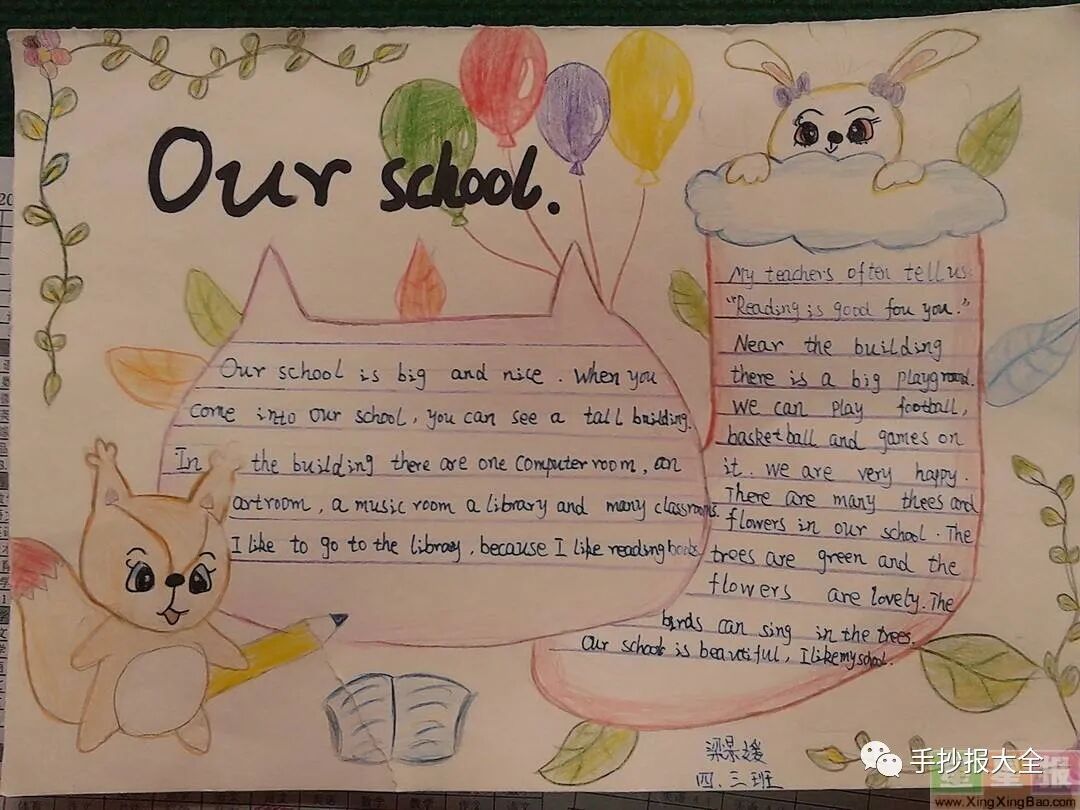 Our school.
Our school is big and nice. When you
come into our school, you can see a tall building.
In the building there are one computer room, an
artroom, a music room a library and many classrooms.
I like to go to the library, because I like reading books
My teachers often tell us:
"Reading is good fou you."
Near the building
there is a big playground.
We can play football,
basketball and games on
it. We are very happy.
There are many thees and
flowers in our school. The
trees are green and the
flowers are lovely. The
birds can sing in the trees.
Our school is beautiful, I like my school.
四.三班
手抄报大全
www.XingXingBao.com